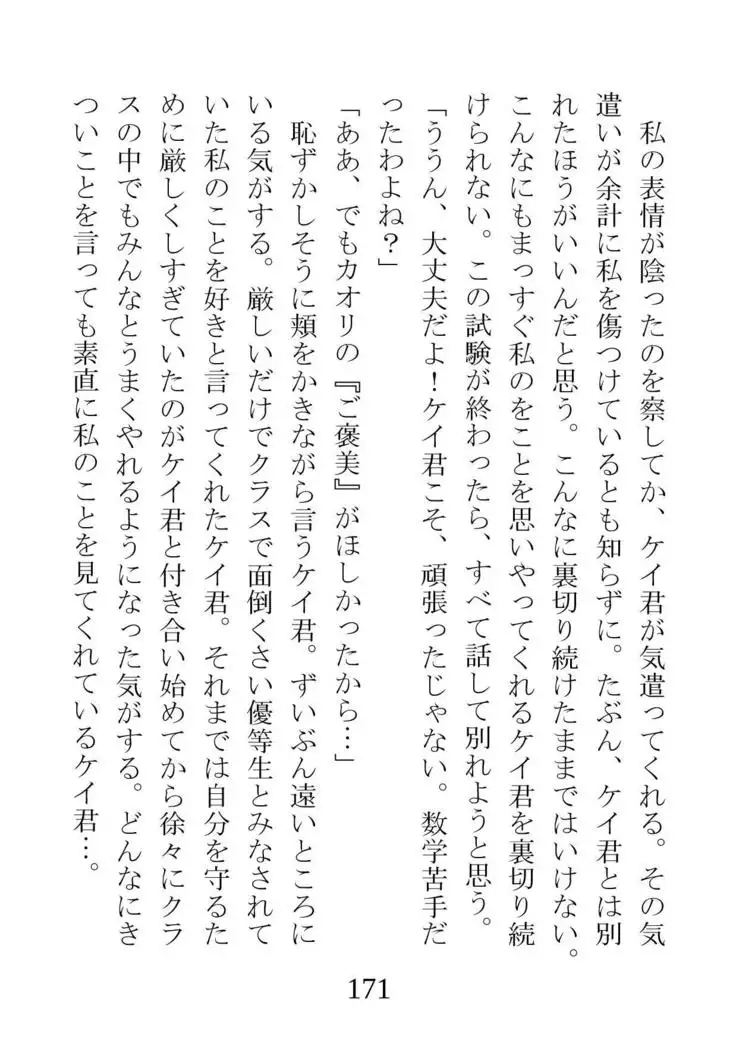 私の表情が陰ったのを察してか、ケイ君が気遣ってくれる。その気
遣いが余計に私を傷つけているとも知らずに。たぶん、ケイ君とは別
れたほうがいいんだと思う。こんなに裏切り続けたままではいけない。
こんなにもまっすぐ私のをことを思いやってくれるケイ君を裏切り続
けられない。この試験が終わったら、すべて話して別れようと思う。
「ううん、大丈夫だよ！ケイ君こそ、頑張ったじゃない。数学苦手だ
ったわよね？」
「ああ、でもカオリの『ご褒美』がほしかったから…」
恥ずかしそうに頬をかきながら言うケイ君。ずいぶん遠いところに
いる気がする。厳しいだけでクラスで面倒くさい優等生とみなされて
いた私のことを好きと言ってくれたケイ君。それまでは自分を守るた
めに厳しくしすぎていたのがケイ君と付き合い始めてから徐々にクラ
スの中でもみんなとうまくやれるようになった気がする。どんなにき
ついことを言っても素直に私のことを見てくれているケイ君…。
171